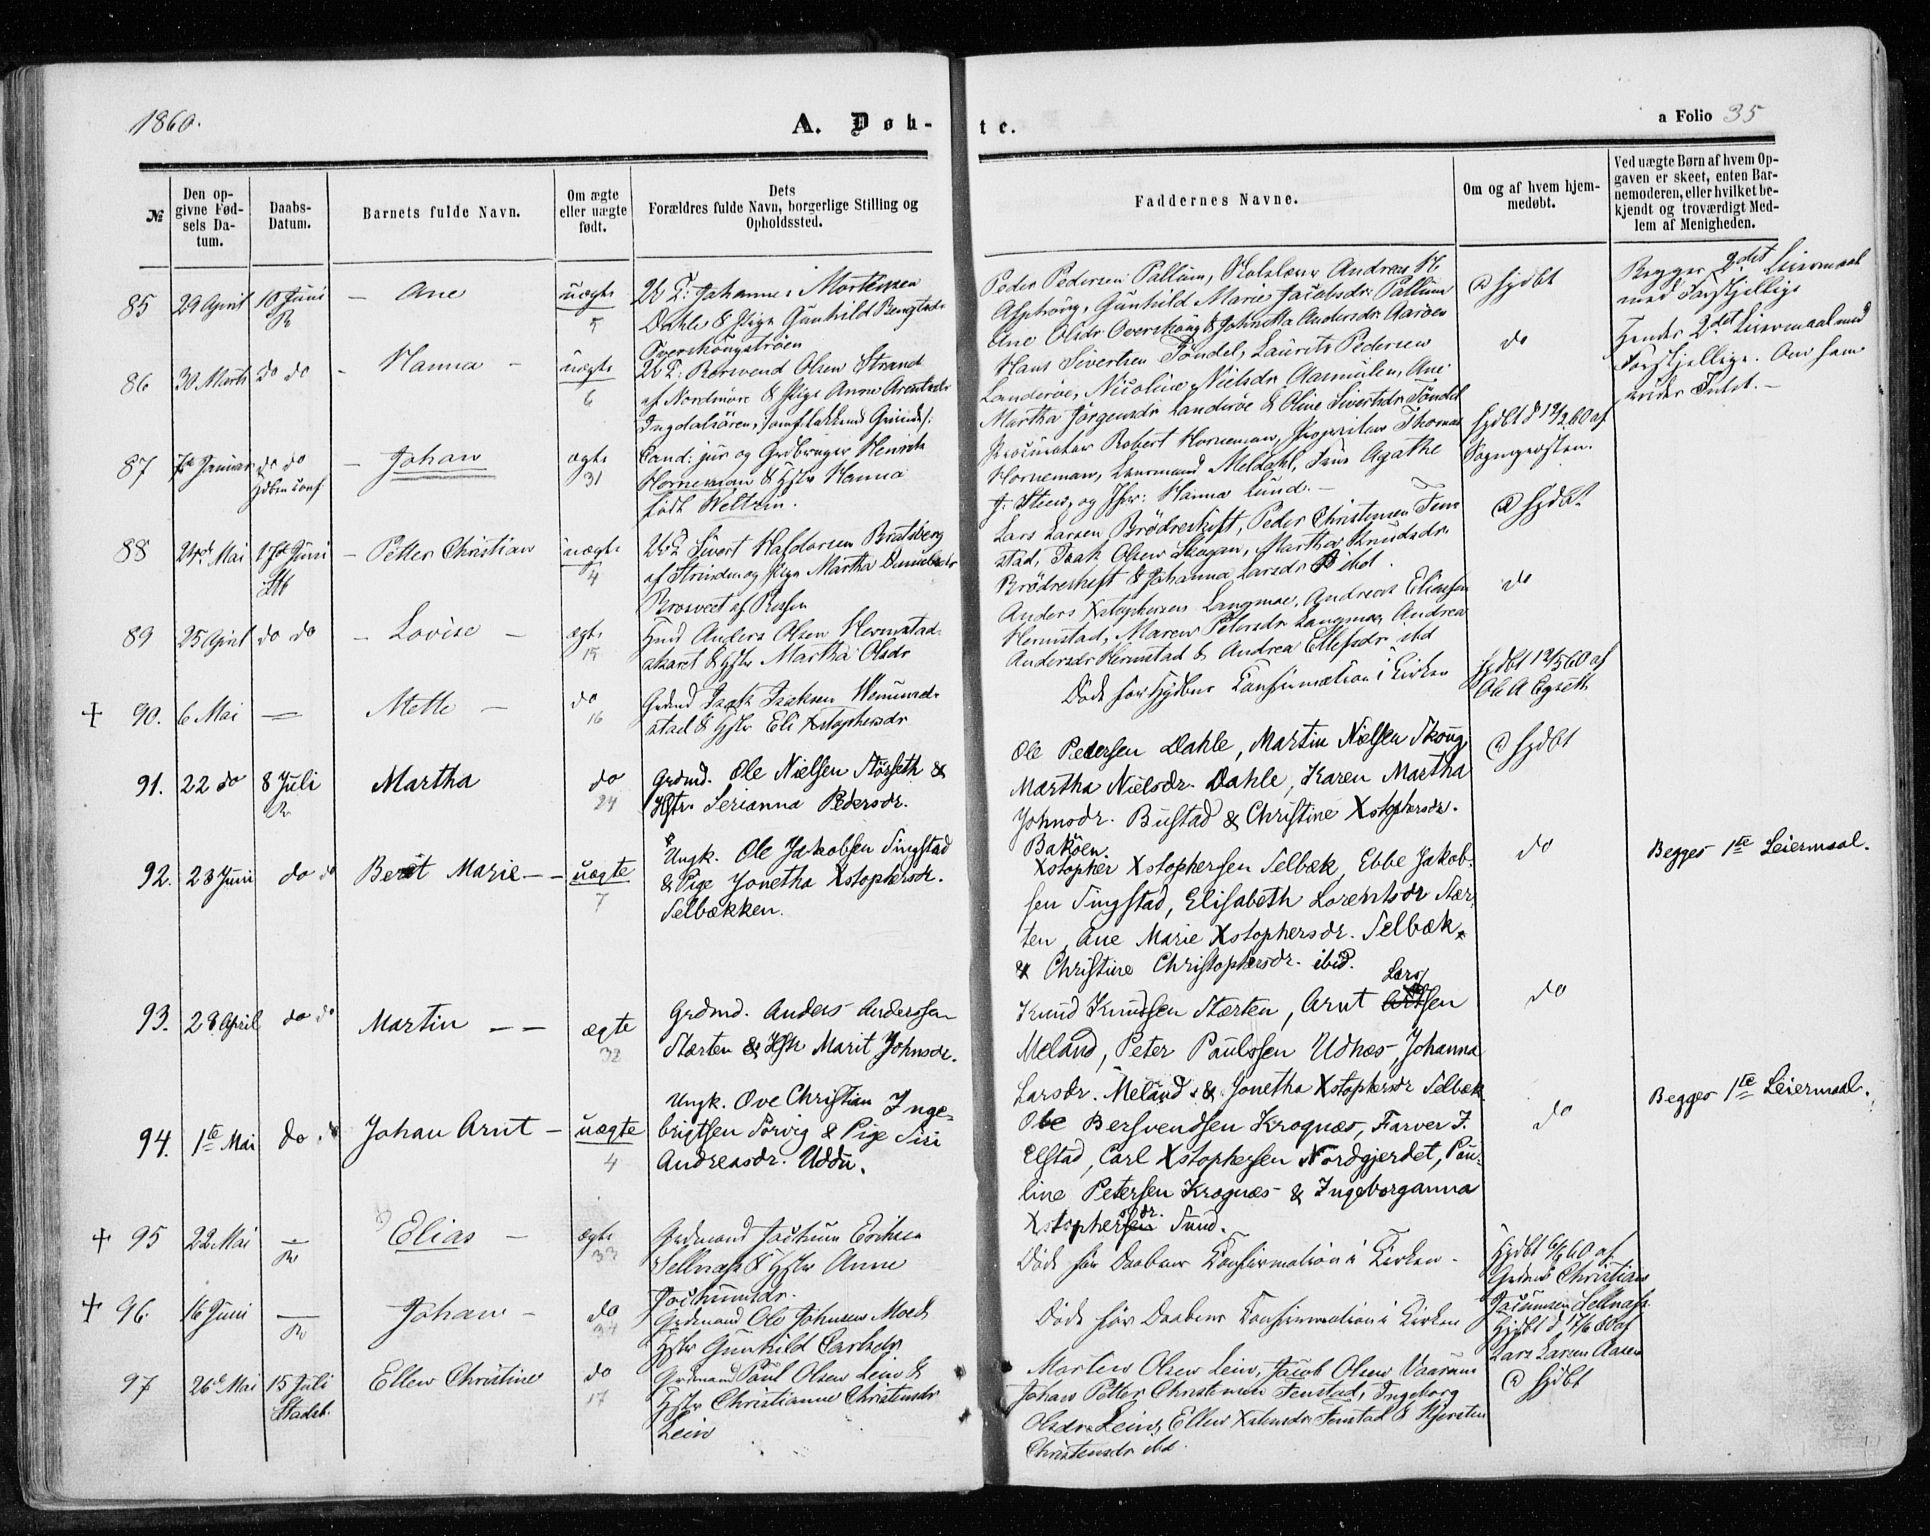 1860.
A. Døb-
te.
a Folio 35
№
Den opgivne Fødsels Datum.
Daabs-Datum.
Barnets fulde Navn.
Om ægte eller uægte født.
Dets Forældres fulde Navn, borgerlige Stilling og Opholdssted.
Faddernes Navne.
Om og af hvem hjemmedøbt.
Ved uægte Børn af hvem Opgaven er skeet, enten Barnemoderen, eller hvilket bekjendt og troværdigt Medlem af Menigheden.
85 29 April 10 Juni R – Ane uægte 5
Johannes Mortensen
Dahle & Pige Gunhild Bengtsdr
Overskougstrøen
Peder Pedersen Pallum, Andreas H.
Asphøug, Gunhild Marie Jacobsdr Pallum
Ane Olsdr Overskoug & Johnetta Andersdr Aaroen
Hjdbt
Begges 2det Leiermaal
med Forskjellige
86 30 Marts do do – Hanna – uægte 6
Olsen Strand
af Nordmøre & Pige Anne Arentsdr
Ingdalsøren,
Hans Sivertsen Tøndel, Laurits Pedersen
Landerøe, Nicoline Nielsdr Aasmulen, Ane
Martha Jørgensdr Landerøe & Oline Sivertsdr Tøndel
do
Hendes 2det Leiermaal med
Forskjellige. Om ham
vides Intet. –
87 Januar do do – Johan ægte 31
Cand: jur og Grdbruger Henrik
Horneman & Hstr Hanna
født Weltzin.
Procurator Robert Horneman, Proprietær Thomas
Horneman, Lensmand Meldahl, Frue Agathe
F. Steen, og Hanna Lund. –
Hjdbt d 19/2 60 af
Sogneprsten.
88 24de Mai 17de Juni – Petter Christian uægte 4
Sivert Haldorsen Bratsberg
af Strinden og Pige Martha Danielsdr
Brosveet af Rissen
Lars Larsen Brødreskift, Peder Christensen Fenstad,
Isak Olsen Skogan, Martha Knudsdr
Brødreskift & Johanna Larsdr ibid.
Hjdbt
89 25 April do do – Lovise – ægte 15
Hmd Anders Olsen Hermstadakaret
& Hstr Martha Olsdr
Anders Xstophersen Langmoe, Andreas Eliassen
Hermstad, Maren Petersdr Langmoe, Andrea
Andersdr Hermstad & Andrea Ellefsdr ibd
do
+ 90. 6 Mai — Mette – do 16
Grdmd Isack Isaksen Wemundstad
& Hstr Eli Xstophersdr
Døde før Hjdbens Confirmation i Kirken
Hjdbt 12/5 60 af
Ole A Egseth
91. 22 do 8 Juli R. Martha do 24
Grdmd. Ole Nielsen Størseth &
Hstr. Serianna Pedersdr.
Ole Petersen Dahle, Martin Nielsen Skoug,
Martha Nielsdr. Dahle, Karen Martha
Johnsdr. Bustad & Christine Xstophersdr.
Bakøen.
Hjdbt
92. 23 Juni do do Berit Marie – – uægte 7
Ungk. Ole Jakobsen Singstad
& Pige Jonetha Xstophersdr.
Selbækken.
Xstopher Xstophersen Selbæk, Ebbe Jakobsen
Singstad, Elisabeth Lorentsdr Stærten,
Ane Marie Xstophersdr. Selbæk
& Christine Christophersdr. ibid.
do
Begges 1ste Leiermaal.
93. 28 April do do Martin – – ægte 32
Grdmd. Anders Anderssen
Stærten & Hstr Marit Johnsdr.
Knud Knudsen Stærten, Arnt Larssen
Meland, Peter Paulssen Udnæs, Johanna
Larsdr. Meland & Jonetha Xstophersdr Selbæk
do
94. 1te Mai do do Johan Arnt – uægte 4
Ungk. Ove Christian Ingebrigtsen
Sorvig & Pige Siri
Andreasdr. Uddu.
Ole Bersvendsen Krognæs, Farver J.
Elstad, Carl Xstophersen Nordgjerdet, Pauline
Petersen Krognæs & Ingeborganna
Xstophersdr. Sund.
do
Begges 1ste Leiermaal.
+ 95 22 Mai — R Elias – ægte 33
Grdmand Jochum Erichsen
Sellnæss & Hstr Anne
Jochumsdr.
Døde før Daabens Confirmation i Kirken –
Hjdbt 6/6 60 af
Grdmd Christian
Jocumsen Sellnæss
+ 96. 16 Juni — R Johan – do 34
Grdmand Ole Johnsen Moeh
Hstr Gunhild Carlsdr
Døde før Daabens Confirmation i Kirken
Hjdbt d 17/6 60 af
Lars Larsen Aasen
97 26de Mai 15 Juli Stadsb. Ellen Christine do 17
Grdmand Paul Olsen Lein &
Hstr Christianne Christensdr
Lein
Morten Olsen Lein, Jacob Olsen Vaarum
Johan Petter Christensen Fenstad, Ingeborg
Olsdr Lein, Ellen Xstensdr Fenstad & Kjersten
Christensdr ibd.
Hjdbt